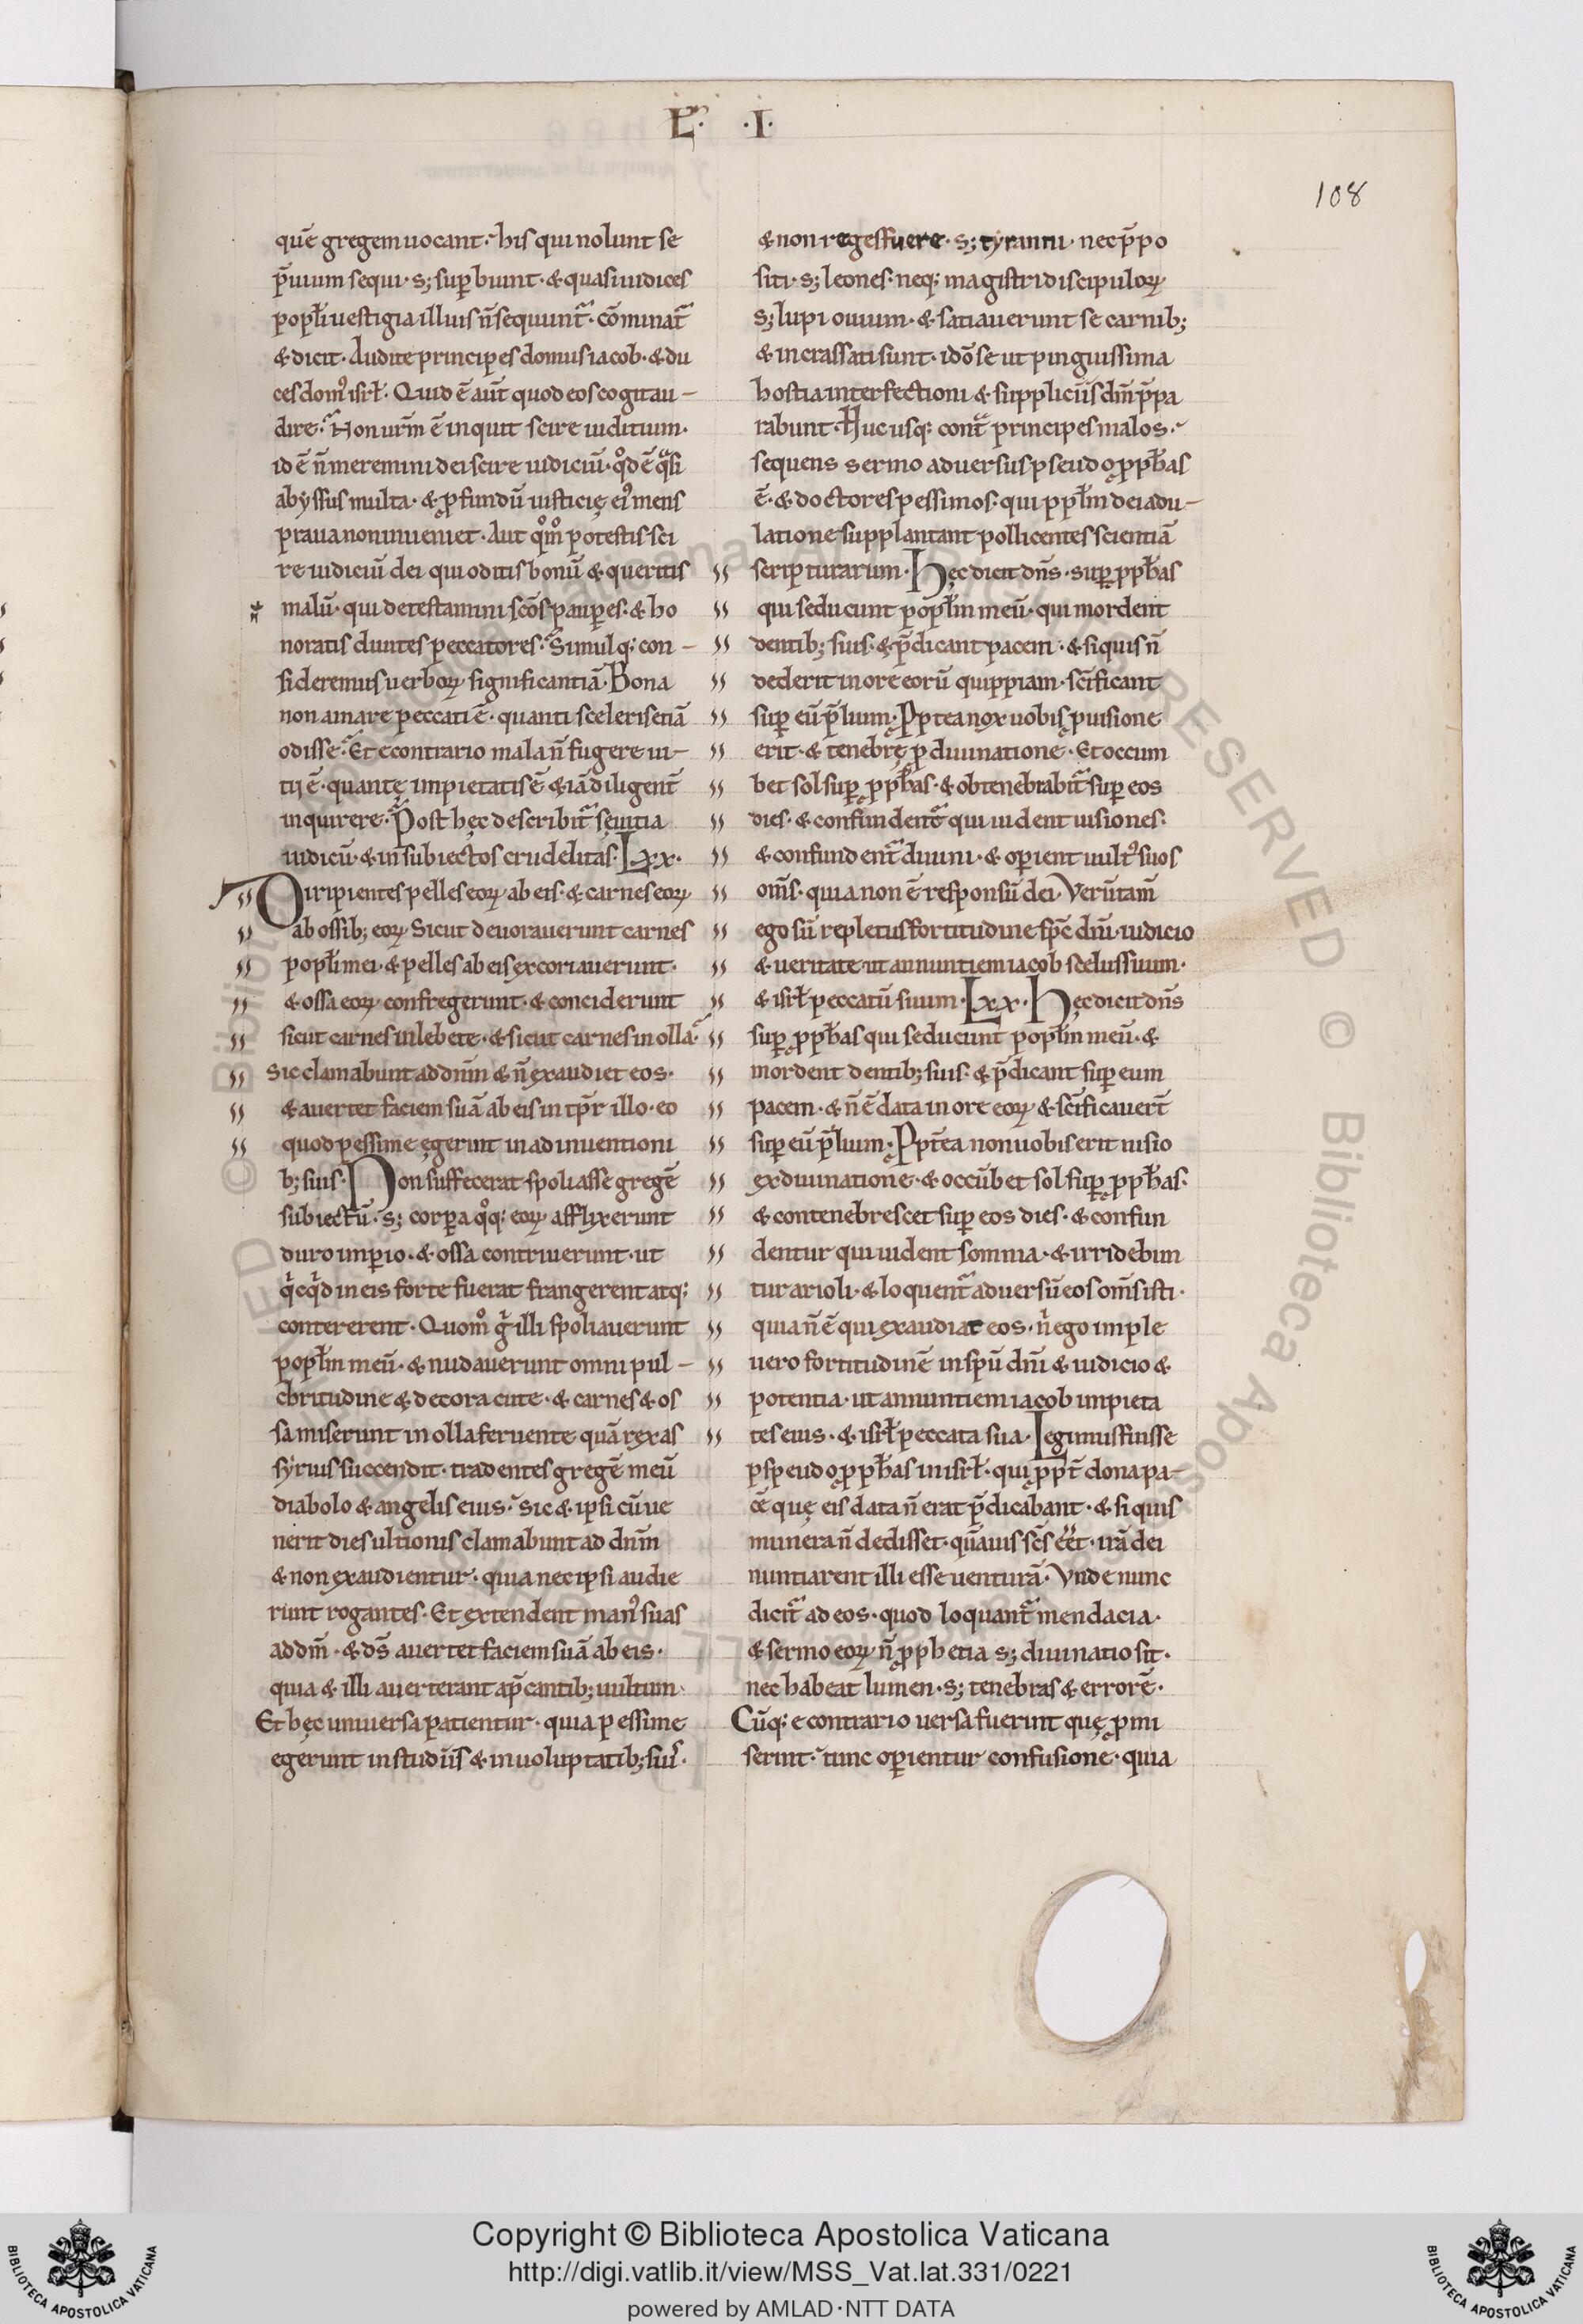 L̄· ·I·
108
quē gregem uocant· his qui nolunt se
p̄uium sequi· s; sup̱biunt· & quasi iudices
popl̄i uestigia illius n̄ sequunt᷑· cōminat᷑
& dicit· Audite principes domus iacob· & du
ces domꝰ isrł· Quid ē aūt quod eos cogit au-
dire· Non ur̄m ē inquit scire iuditium·
id ē n̄ meremini dei scire iudiciū· qͦd ē qͣsi
abyssus multa· & ꝓfundū iusticię eiꝰ mens
praua non inueniet· Aut qͦm̊ potestis sci
re iudiciū dei qui oditis bonū & queritis
malū· qui detestamini scōs paup̱es· & ho
noratis diuites peccatores· Simulq; con-
sideremus uerboꝝ significantiā· Bona
non amare peccati ē· quanti sceleris etiā
odisse· Et econtrario mala n̄ fugere ui-
tij ē· quantę impietatis ē & iā diligent̄
inquirere· Post hęc describit᷑ sęuitia
iudicū· & in subiectos crudelitas· Lxx·
Diripientes pelles eoꝝ ab eis· & carnes eoꝝ
ab ossib; eoꝝ Sicut deuorauerunt carnes
popl̄i mei· & pelles ab eis excoriauerunt·
& ossa eoꝝ confregerunt· & conciderunt
sicut carnes in lebete· & sicut carnes in olla·
Sic clamabunt ad dn̄m & n̄ exaudiet eos·
& auertet faciem suā ab eis in tp̄r illo· eo
quod pessime egerint in adinuentioni
b; suis· Non suffecerat spoliasse gregē
subiectū· s; corp̱a qͦq; eoꝝ afflixerunt
duro imp̱io· & ossa contriuerunt· ut
qͥcqͥd in eis forte fuerat frangerent atq;
contererent· Quom̊ gͥ illi spoliauerunt
popl̄m meū· & nudauerunt omni pul-
chritudine & decora cute· & carnes & os
sa miserunt in olla feruente quā rex as
syrius succendit· tradentes gregē meū
diabolo & angelis eius· sic & ipsi cū ue
nerit dies ultionis clamabunt ad dn̄m
& non exaudientur· quia nec ipsi audie
runt rogantes· Et extendent manꝰ suas
ad dm̄· & ds̄ auertet faciem suā ab eis·
quia & illi auerterant a p̄cantib; uultum·
Et hęc uniuersa patientur· quia pessime
egerunt in studiis & in uoluptatib; suis·
& non reges fuere· s; tyranni· nec p̄po
siti· s; leones· neq; magistri discipuloꝝ
s; lupi ouium· & satiauerunt se carnib;
& incrassati sunt· idō se ut pinguissima
hostia interfectioni & suppliciis dn̄i p̄pa
rabunt· Huc usq; contͣ principes malos·
sequens sermo aduersus pseudo ꝓphas
ē· & doctores pessimos· qui ppl̄m dei adu-
latione supplantant pollicentes scientiā
scripturarum· Hęc dicit dn̄s· sup̱ ꝓphas
qui seducunt popl̄m meū· qui mordent
dentib; suis· & p̄dicant pacem· & si quis n̄
dederit in ore eorū quippiam· sc̄ificant
sup̱ eū p̄lium· Ꝓptea nox uobis ꝓ uisione
erit· & tenebrę ꝓ diuinatione· Et occum
bet sol sup̱ ꝓphas· & obtenebrabit᷑ sup̱ eos
dies· & confundent᷑ qui uident uisiones·
& confundent᷑ diuini· & op̱ient uultꝰ suos
om̄s· quia non ē responsū dei· Verūtam̄
ego sū repletus fortitudine sp̄c dn̄i· iudicio
& ueritate ut annuntiem iacob scelus suum·
& isrł peccatū suum· Lxx· Hęc dicit dn̄s
sup̱ ꝓphas qui seducunt popl̄m meū· &
mordent dentib; suis· & p̄dicant sup̱ eum
pacem· & n̄ ē data in ore eoꝝ & sc̄ificauert̄
sup̱ eū p̄lium· Ꝓpt̄ea non uobis erit uisio
ex diuinatione· & occūbet sol sup̱ ꝓphas·
& contenebrescet sup̱ eos dies· & confun
dentur qui uident somnia· & irridebun
tur arioli· & loquent᷑ aduersū eos om̄s isti·
quia n̄ ē qui exaudiat eos· nͥ ego imple
uero fortitudinē in sp̄u dn̄i & iudicio &
potentia· ut annuntiem iacob impieta
tes eius· & isrł peccata sua· Legimus fuisse
pspeudo ꝓphas in isrł· qui ꝓpt̄ dona pa-
cē quę eis data n̄ erat p̄dicabant· & si quis
munera n̄ dedisset· quāuis sc̄s eēt· irā dei
nuntiarent illi esse uenturā· Vnde nunc
dicit᷑ ad eos· quod loquant᷑ mendacia·
& sermo eoꝝ n̄ ꝓphetia s; diuinatio sit·
nec habeat lumen· s; tenebras & errorē·
Cūq; econtrario uersa fuerint quę ꝓmi
serint· tunc op̱ientur confusione· quia
Copyright © Biblioteca Apostolica Vaticana
http://digi.vatlib.it/view/MSS_Vat.lat.331/0221
powered by AMLAD·NTT DATA
BIBLIOTECA APOSTOLICA VATICANA
BIBLIOTECA APOSTOLICA VATICANA